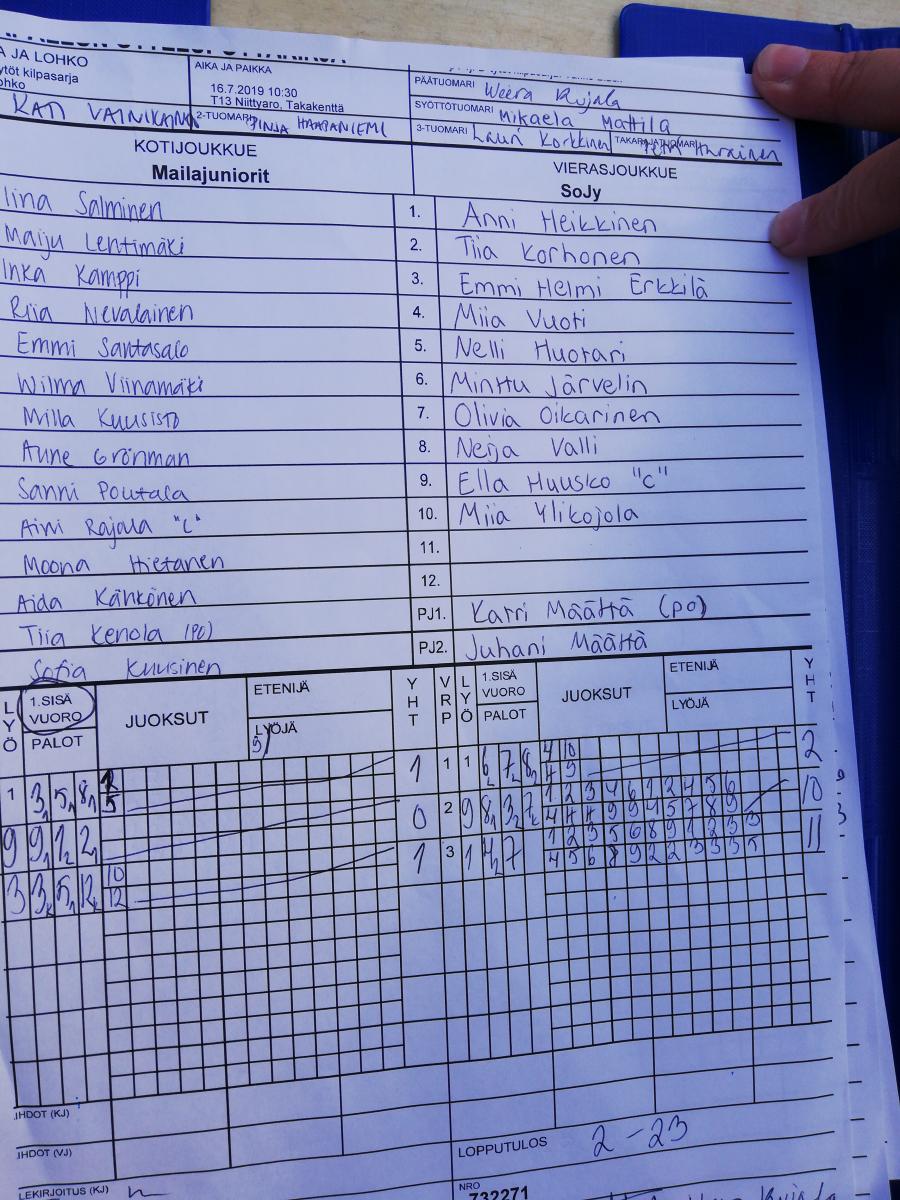 A JA LOHKO
ytöt kilpasarja
ohko
AIKA JA PAIKKA
16.7.2019 10:30
T13 Niittyaro, Takakenttä
PÄÄTUOMARI Weera Kujala
SYÖTTÖTUOMARI Mikaela Mattila
KATI VATNIKAINEN
2-TUOMARI PINJA HAAPANIEMI
3-TUOMARI Lauri Korkkinen TAKARAJATUOMARI
KOTIJOUKKUE VIERASJOUKKUE
Mailajuniorit SoJy
Iina Salminen 1. Anni Heikkinen
Maiju Lehtimäki 2. Tiia Korhonen
Inka Kamppi 3. Emmi Helmi Erkkilä
Riia Nevalainen 4. Miia Vuoti
Emmi Santasalo 5. Nelli Huotari
Wilma Viinamäki 6. Minttu Järvelin
Milla Kuusisto 7. Olivia Oikarinen
Aune Grönman 8. Neija Valli
Sanni Poutala 9. Ella Huusko "C"
Aini Rajala "C" 10. Miia Ylikojola
Moona Hietanen 11.
Aida Kähkönen 12.
Tiia Kenola (PO) PJ1. Karri Määttä (po)
Sofia Kuusinen PJ2. Juhani Määttä
LYÖ 1.SISÄ VUORO PALOT JUOKSUT ETENIJÄ LYÖJÄ YHT VRP LYÖ 1.SISÄ VUORO PALOT JUOKSUT ETENIJÄ LYÖJÄ YHT
1 3 5 8 5 1 1 1 6 7 8 4 10 2
4 9
9 9 1 2 0 2 9 8 3 7 1 2 3 4 6 1 2 4 5 6 10
4 4 4 9 9 4 5 7 8 9
3 3 5 12 10 1 3 1 4 7 1 2 3 5 6 8 9 1 2 3 3 11
12 4 5 6 8 9 2 2 3 3 3 5
IHDOT (KJ)
IHDOT (VJ)
LOPPUTULOS 2-23
LEKIRJOITUS (KJ)
NRO
732271